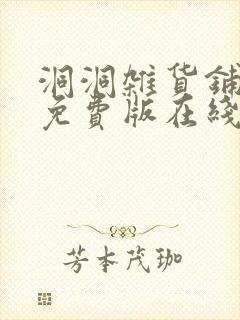 洞洞雑貨鋪
免費版在綫
芳本茂珈